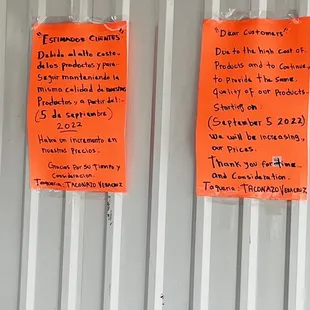 "Estimados Clientes"
Debido al alto costo
de los productos y para
Seguir manteniendo la
misma calidad de nuestros
Productos y a partir del:-
(5 de septiembre)
2022
Habra un incremento en
nuestros Precios.
Gracias Por su Tiempo y
Consideración.
Taqueria: TACONAZO VERACRUZ
"Dear Customers"
Due to the high cost of
Products and to Continue
to provide the same
Quality of our Products.
Starting on
(September 5 2022)
We will be increasing
our Prices.
Thank you for time
and Consideration.
Taqueria: TACONAZO VERACRUZ